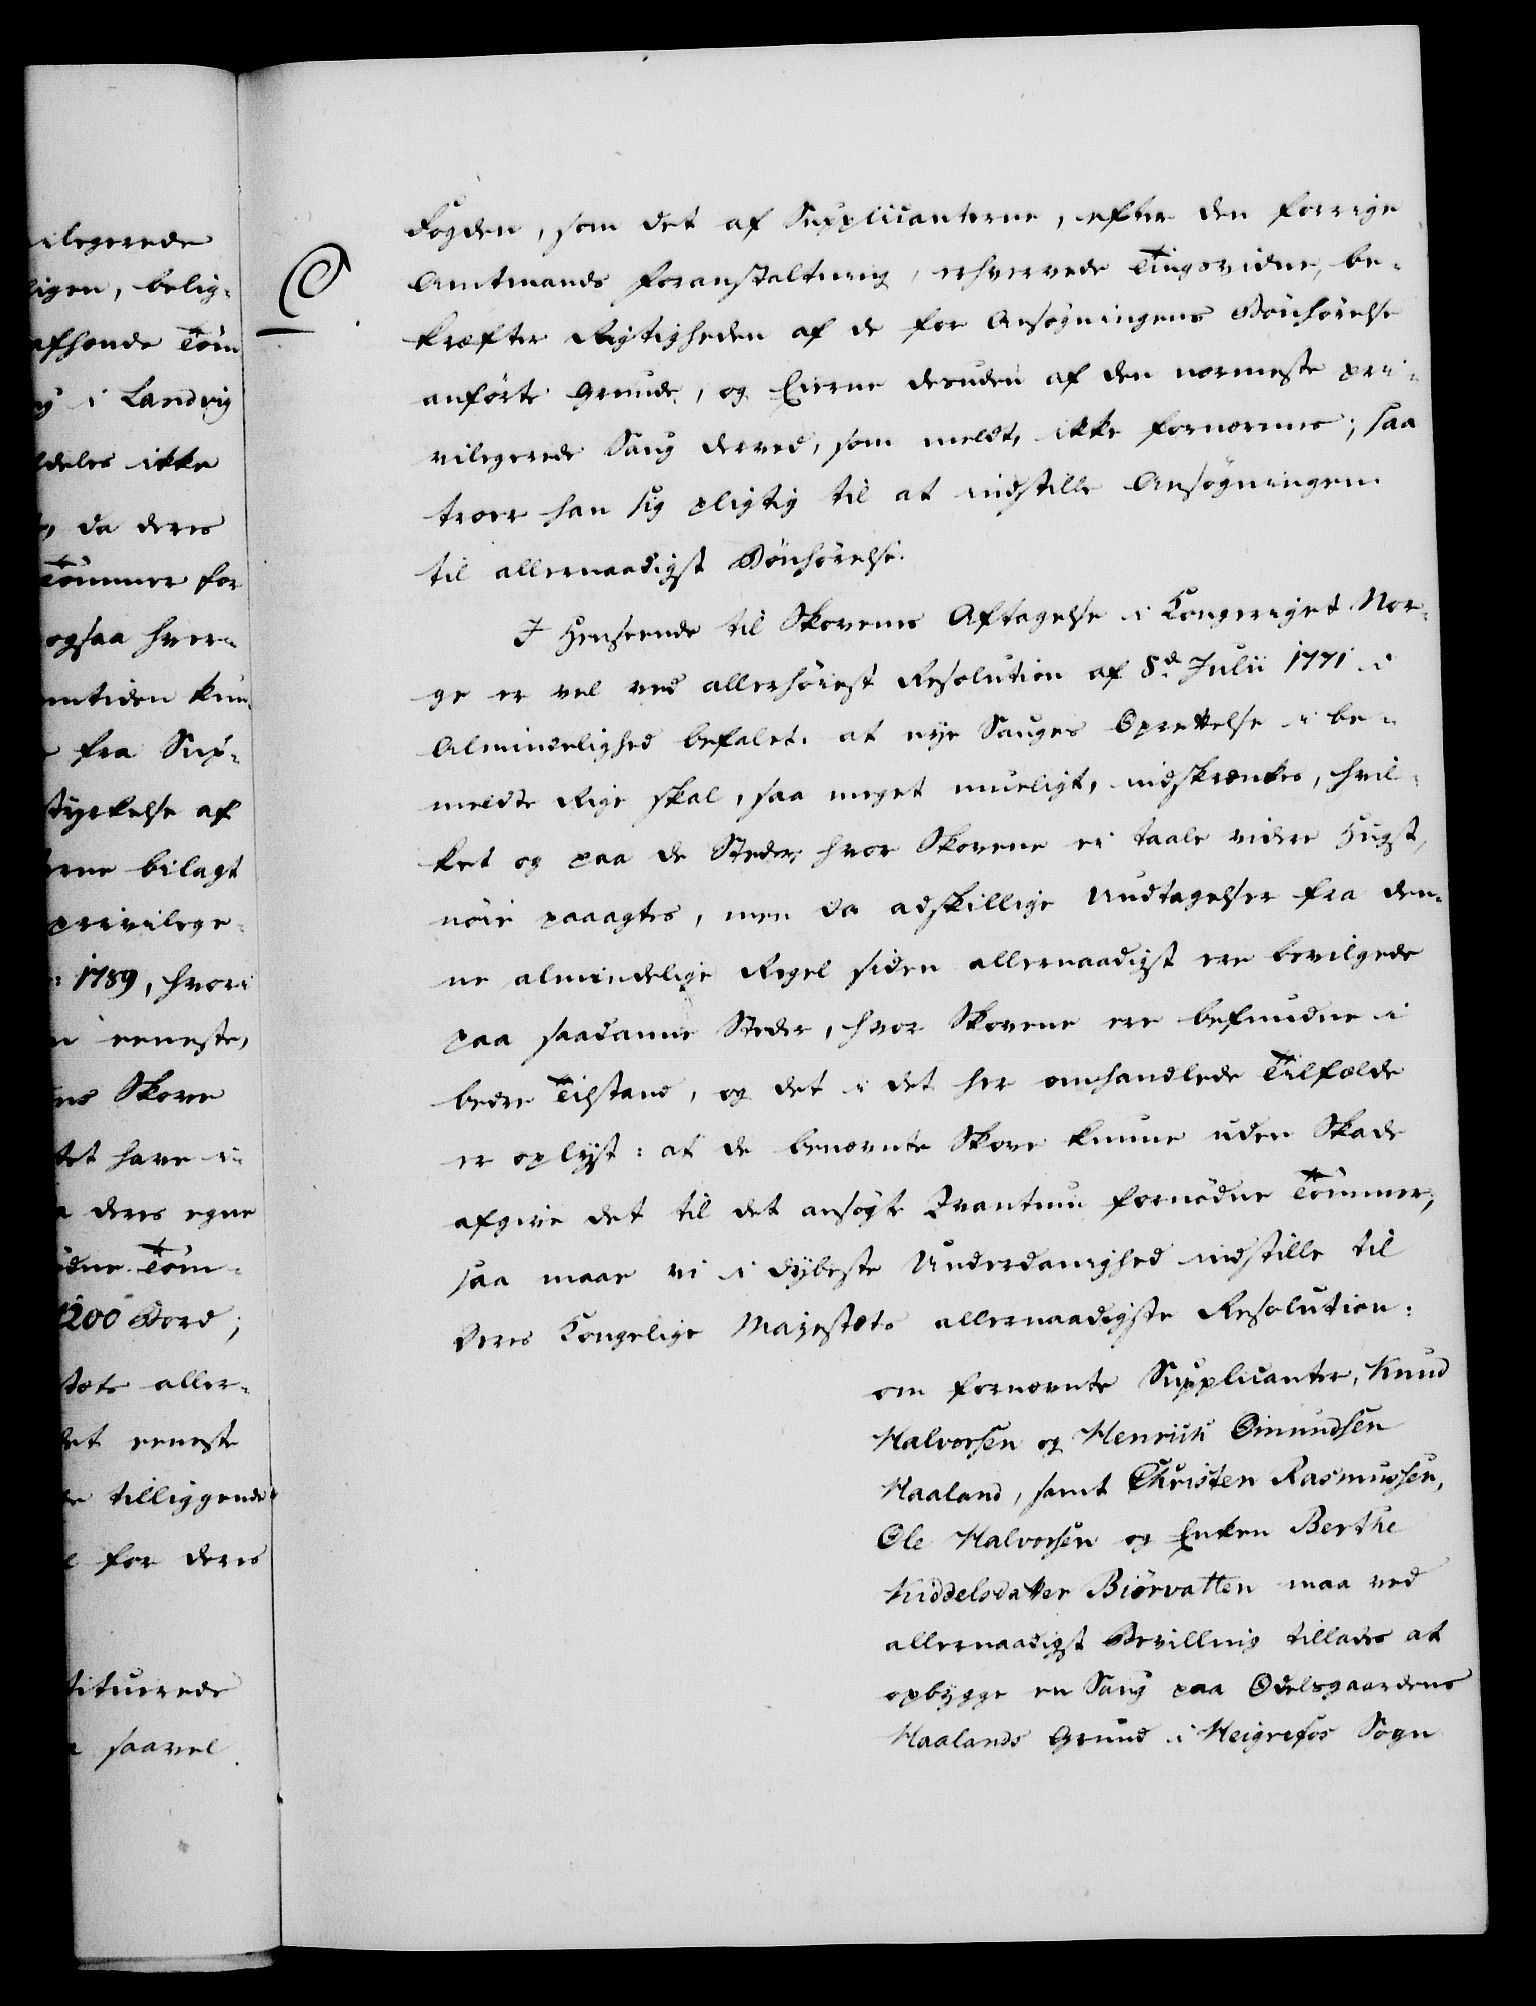 ilegerede
ligen, belig-
afhænde Töm
i Landvig
deles ikke
da deres
Tömmer for
ogsaa hver-
mtiden kun-
fra Sup-
styrkelse af
rne bilagt
privilege-
1789, hvori
eeneste,
ns Skove
tet have i
deres egne
ödne Töm-
1200 Bord;
stæts aller-
det eeneste
de tilliggende
for deres
tituerede
saavel
Fogden, som det af Supplicanterne, efter den forrige
Amtmands Foranstaltning, erhvervede Tingsvidne, be-
kræfter Rigtigheden af de for Ansøgningens Bönhörelse
anförte Grunde, og Eierne desuden af den nærmeste pri-
vilegerede Saug derved, som meldt, ikke fornærmes; saa
troer han sig pligtig til at indstille Ansøgningen
til allernaadigst Bönhörelse.
I Henseende til Skovens Aftagelse i Kongeriget Nor-
ge er vel ved allerhöiest Resolution af 8d. Julii 1771 i
Almindelighed befalet: at nye Sauges Oprettelse i be-
meldte Rige skal, saa meget mueligt, indskrænkes, hvil-
ket og paa de Steder, hvor Skovene ei taale videre Hugst,
nöie paaagtes, men da adskillige Undtagelser fra den-
ne almindelige Regel siden allernaadigst ere bevilgede
paa saadanne Steder, hvor Skovene ere befundne i
bedre Tilstand, og det i det her omhandlede Tilfælde
er oplyst: at de benævnte Skove kunne uden Skade
afgive det til det ansøgte Qvantum fornödne Tömmer;
saa maae vi i dybeste Underdanighed indstille til
Deres Kongelige Majestæts allernaadigste Resolution:
om fornævnte Supplicanter, Knud
Halvorsen og Henrich Omundsen
Haaland, samt Christen Rasmussen,
Ole Halvorsen og Enken Berthe
Kiddelsdatter Biörvatten maa ved
allernaadigst Bevilling tillades at
opbygge en Saug paa Odelsgaardens
Haalands Grund i Heigrefos Sogn